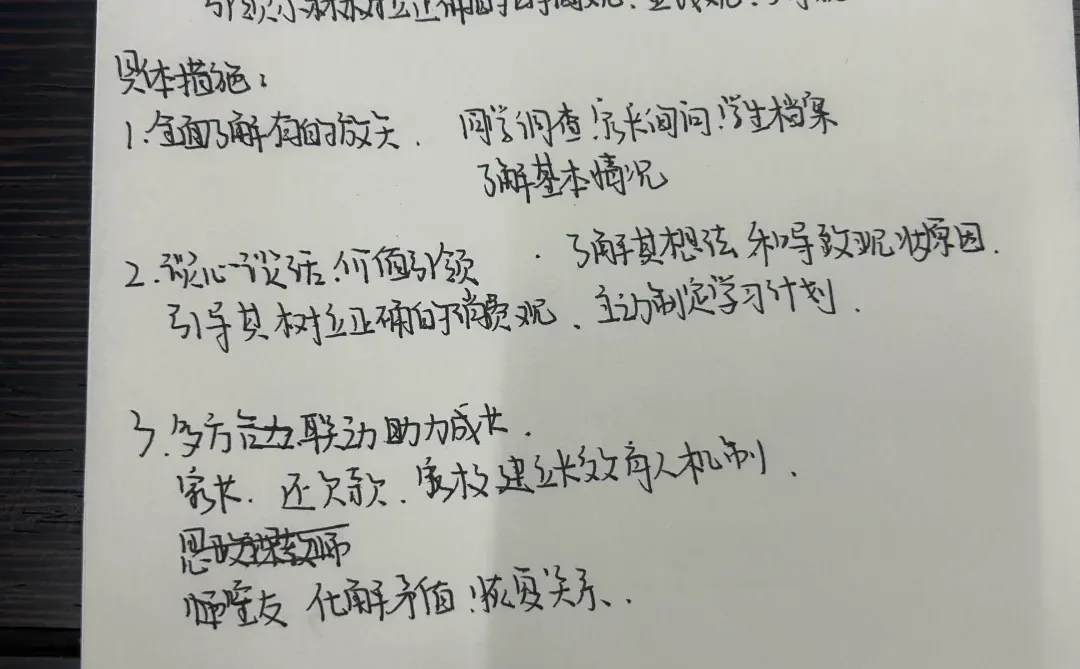 引领小林树立正确的消费观、金钱观、
具体措施：
1.全面了解有的放矢. 同学调查、家长询问、学生档案
了解基本情况
2.谈心谈话、价值引领 . 了解其想法和导致现状原因.
引导其树立正确的消费观、主动制定学习计划.
3.多方联动助力成长.
家长.还欠款.家校建立长效育人机制.
思政课教师
师室友 化解矛盾、恢复关系.